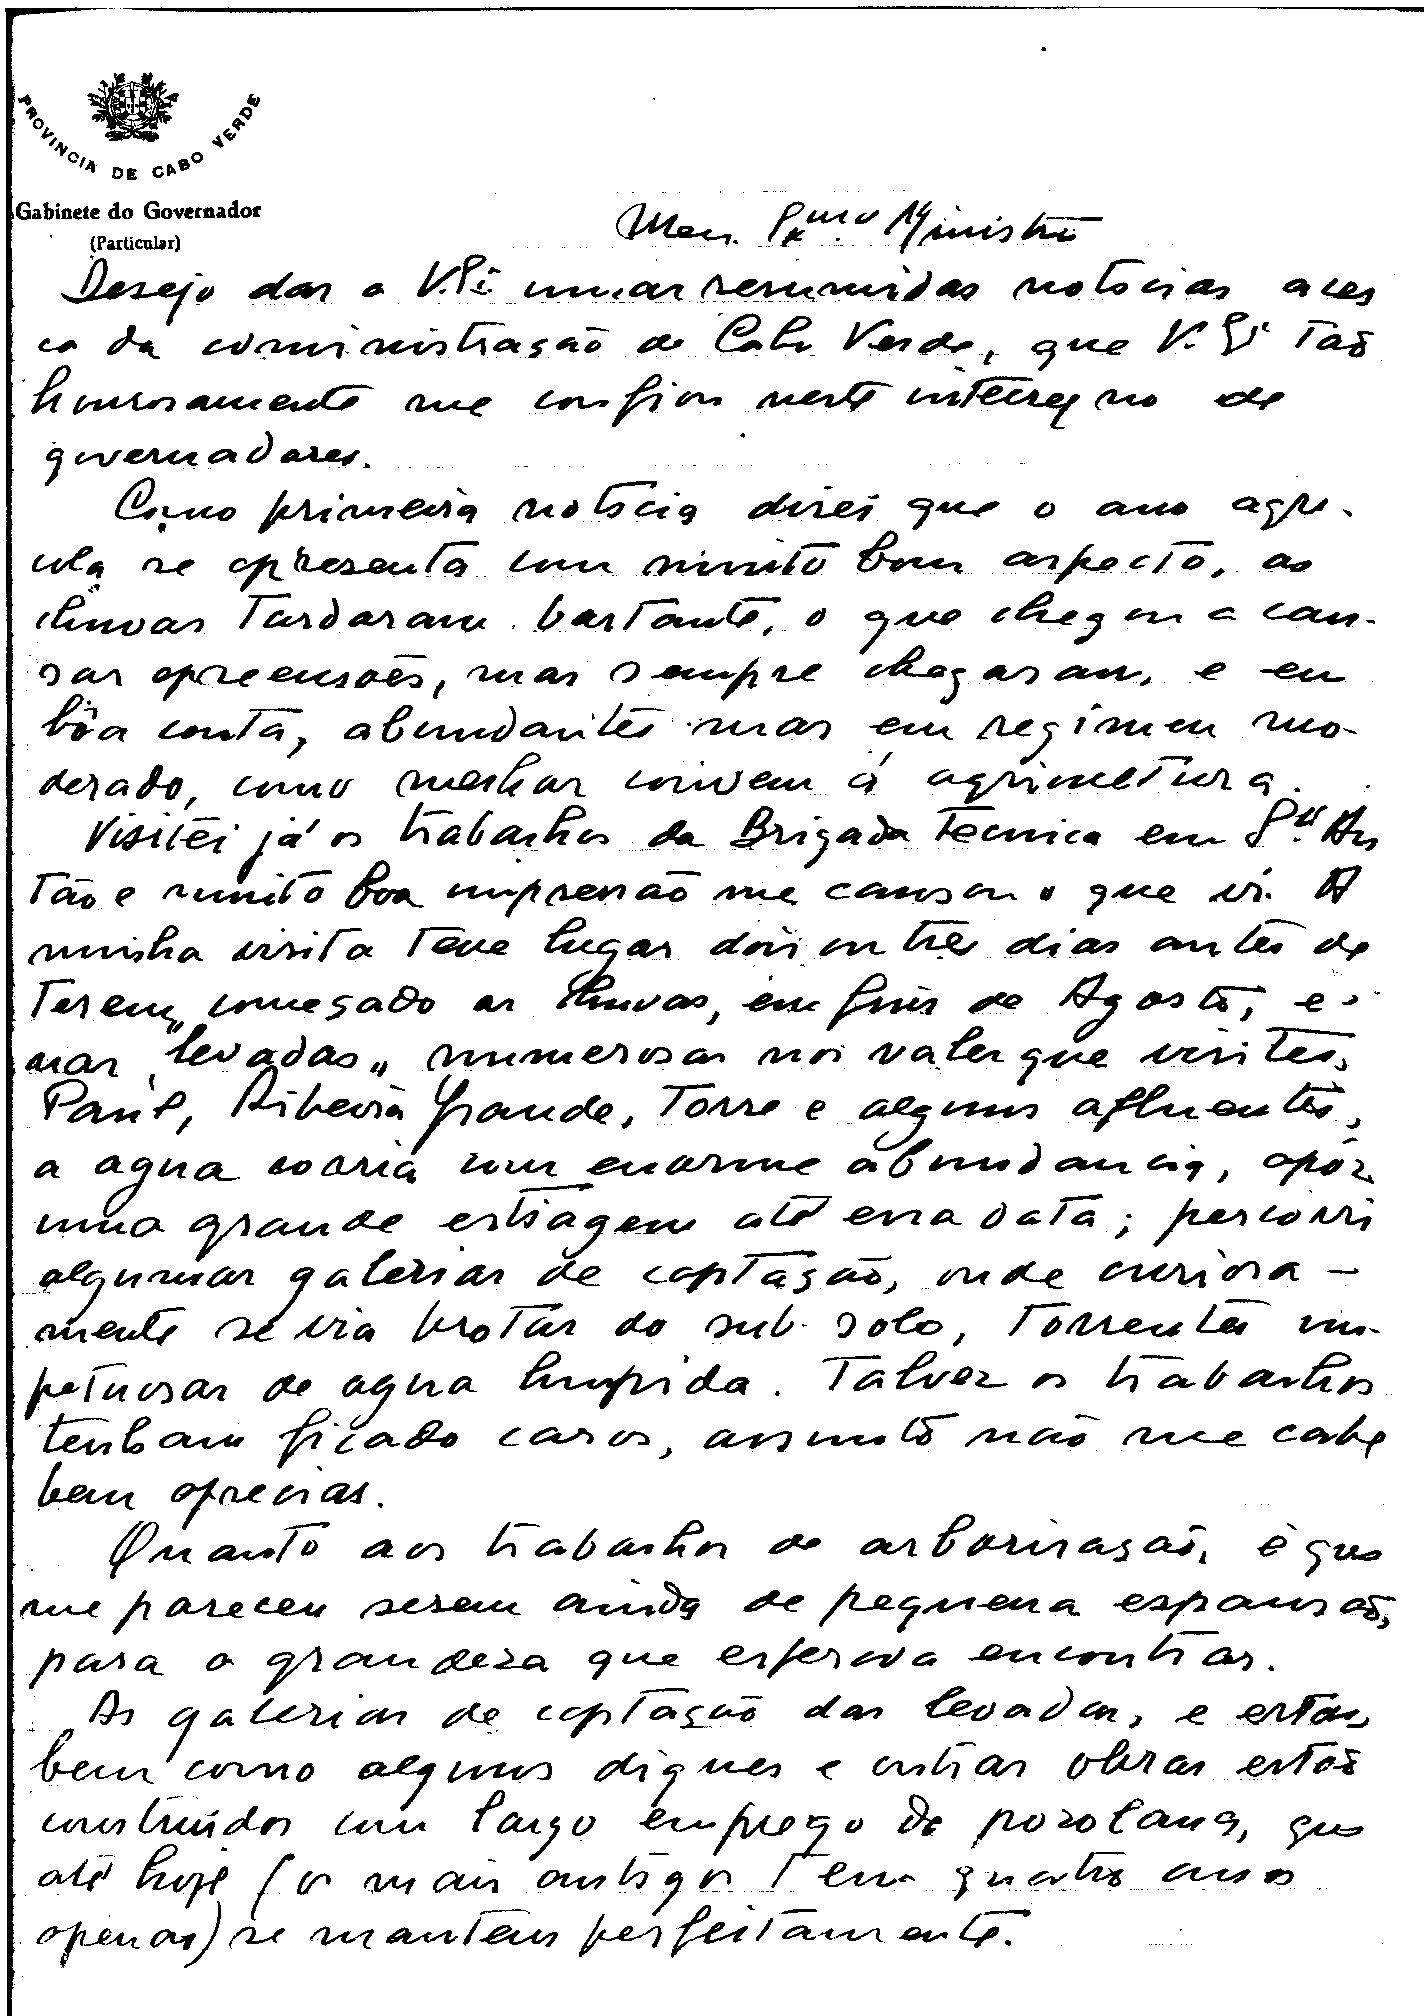 PROVINCIA DE CABO VERDE
Gabinete do Governador
(Particular)
Meu Exmo Ministro
Desejo dar a V. Ex. umas resumidas noticias acer
ca da administração de Cabo Verde, que V. Ex. tão
honrosamente me confiou neste interregno de
governadores.
Como primeira noticia direi que o ano agri-
cola se apresenta com muito bom aspecto, as
chuvas tardaram bastante, o que chegou a cau-
sar apreensões, mas sempre chegaram, e em
bôa conta, abundantes mas em regimen mo-
derado, como melhor convem á agricultura.
Visitei já os trabalhos da Brigada Tecnica em Sto. An
tão e muito boa impressão me causou o que vi. A
minha visita teve lugar dois ou três dias antes de
terem começado as chuvas, em fins de Agosto, e
nas "levadas" numerosas nos vales que visitei,
Paúl, Ribeira Grande, Torre e alguns afluentes,
a agua corria com enorme abundancia, após
uma grande estiagem até essa data; percorri
algumas galerias de captação, onde curiosa-
mente se via brotar do sub-solo, torrentes im-
petuosas de agua limpida. Talvez os trabalhos
tenham ficado caros, assunto não me cabe
bem apreciar.
Quanto aos trabalhos de arborisação, é que
me pareceu serem ainda de pequena expansão,
para a grandeza que esperava encontrar.
As galerias de captação das levadas, e estas,
bem como alguns diques e outras obras estão
construidos com largo emprego de pozolana, que
até hoje (os mais antigos tem quatro anos
apenas) se mantem perfeitamente.